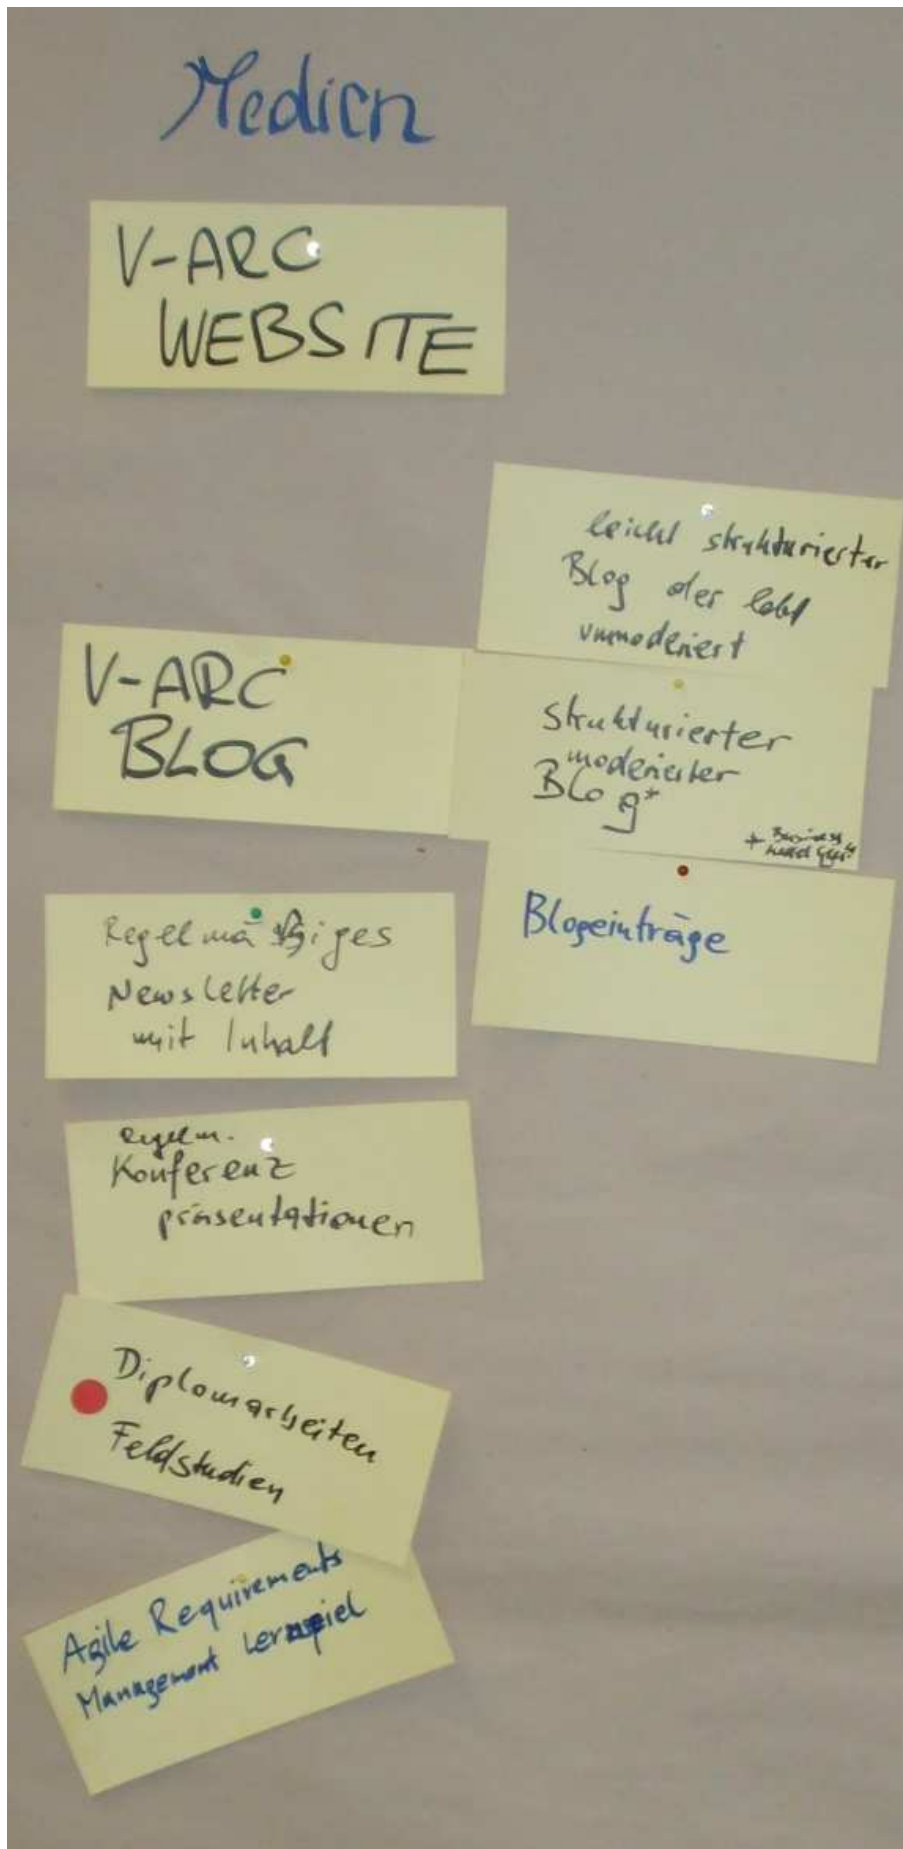 Medien
V-ARC
WEBSITE
leicht strukturierter
Blog der lebt
unmoderiert
V-ARC
BLOG
strukturierter
moderierter
Blog*
* Business
Blogeinträge
Regelmäßiges
Newsletter
mit Inhalt
regelm.
Konferenz
präsentationen
Diplomarbeiten
Feldstudien
Agile Requirements
Management Lernspiel